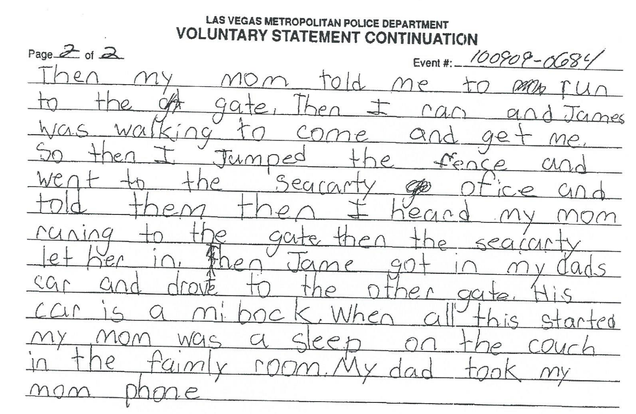 LAS VEGAS METROPOLITAN POLICE DEPARTMENT
VOLUNTARY STATEMENT CONTINUATION
Page 2 of 2
Event #: 100909-0684
Then my mom told me to run
to the gate. Then I ran and James
was walking to come and get me.
So then I Jumped the fence and
went to the seacarty ofice and
told them then I heard my mom
runing to the gate then the seacarty
let her in. then Jame got in my dads
car and drove to the other gate. His
car is a mi bock. When all this started
my mom was a sleep on the couch
in the faimly room. My dad took my
mom phone